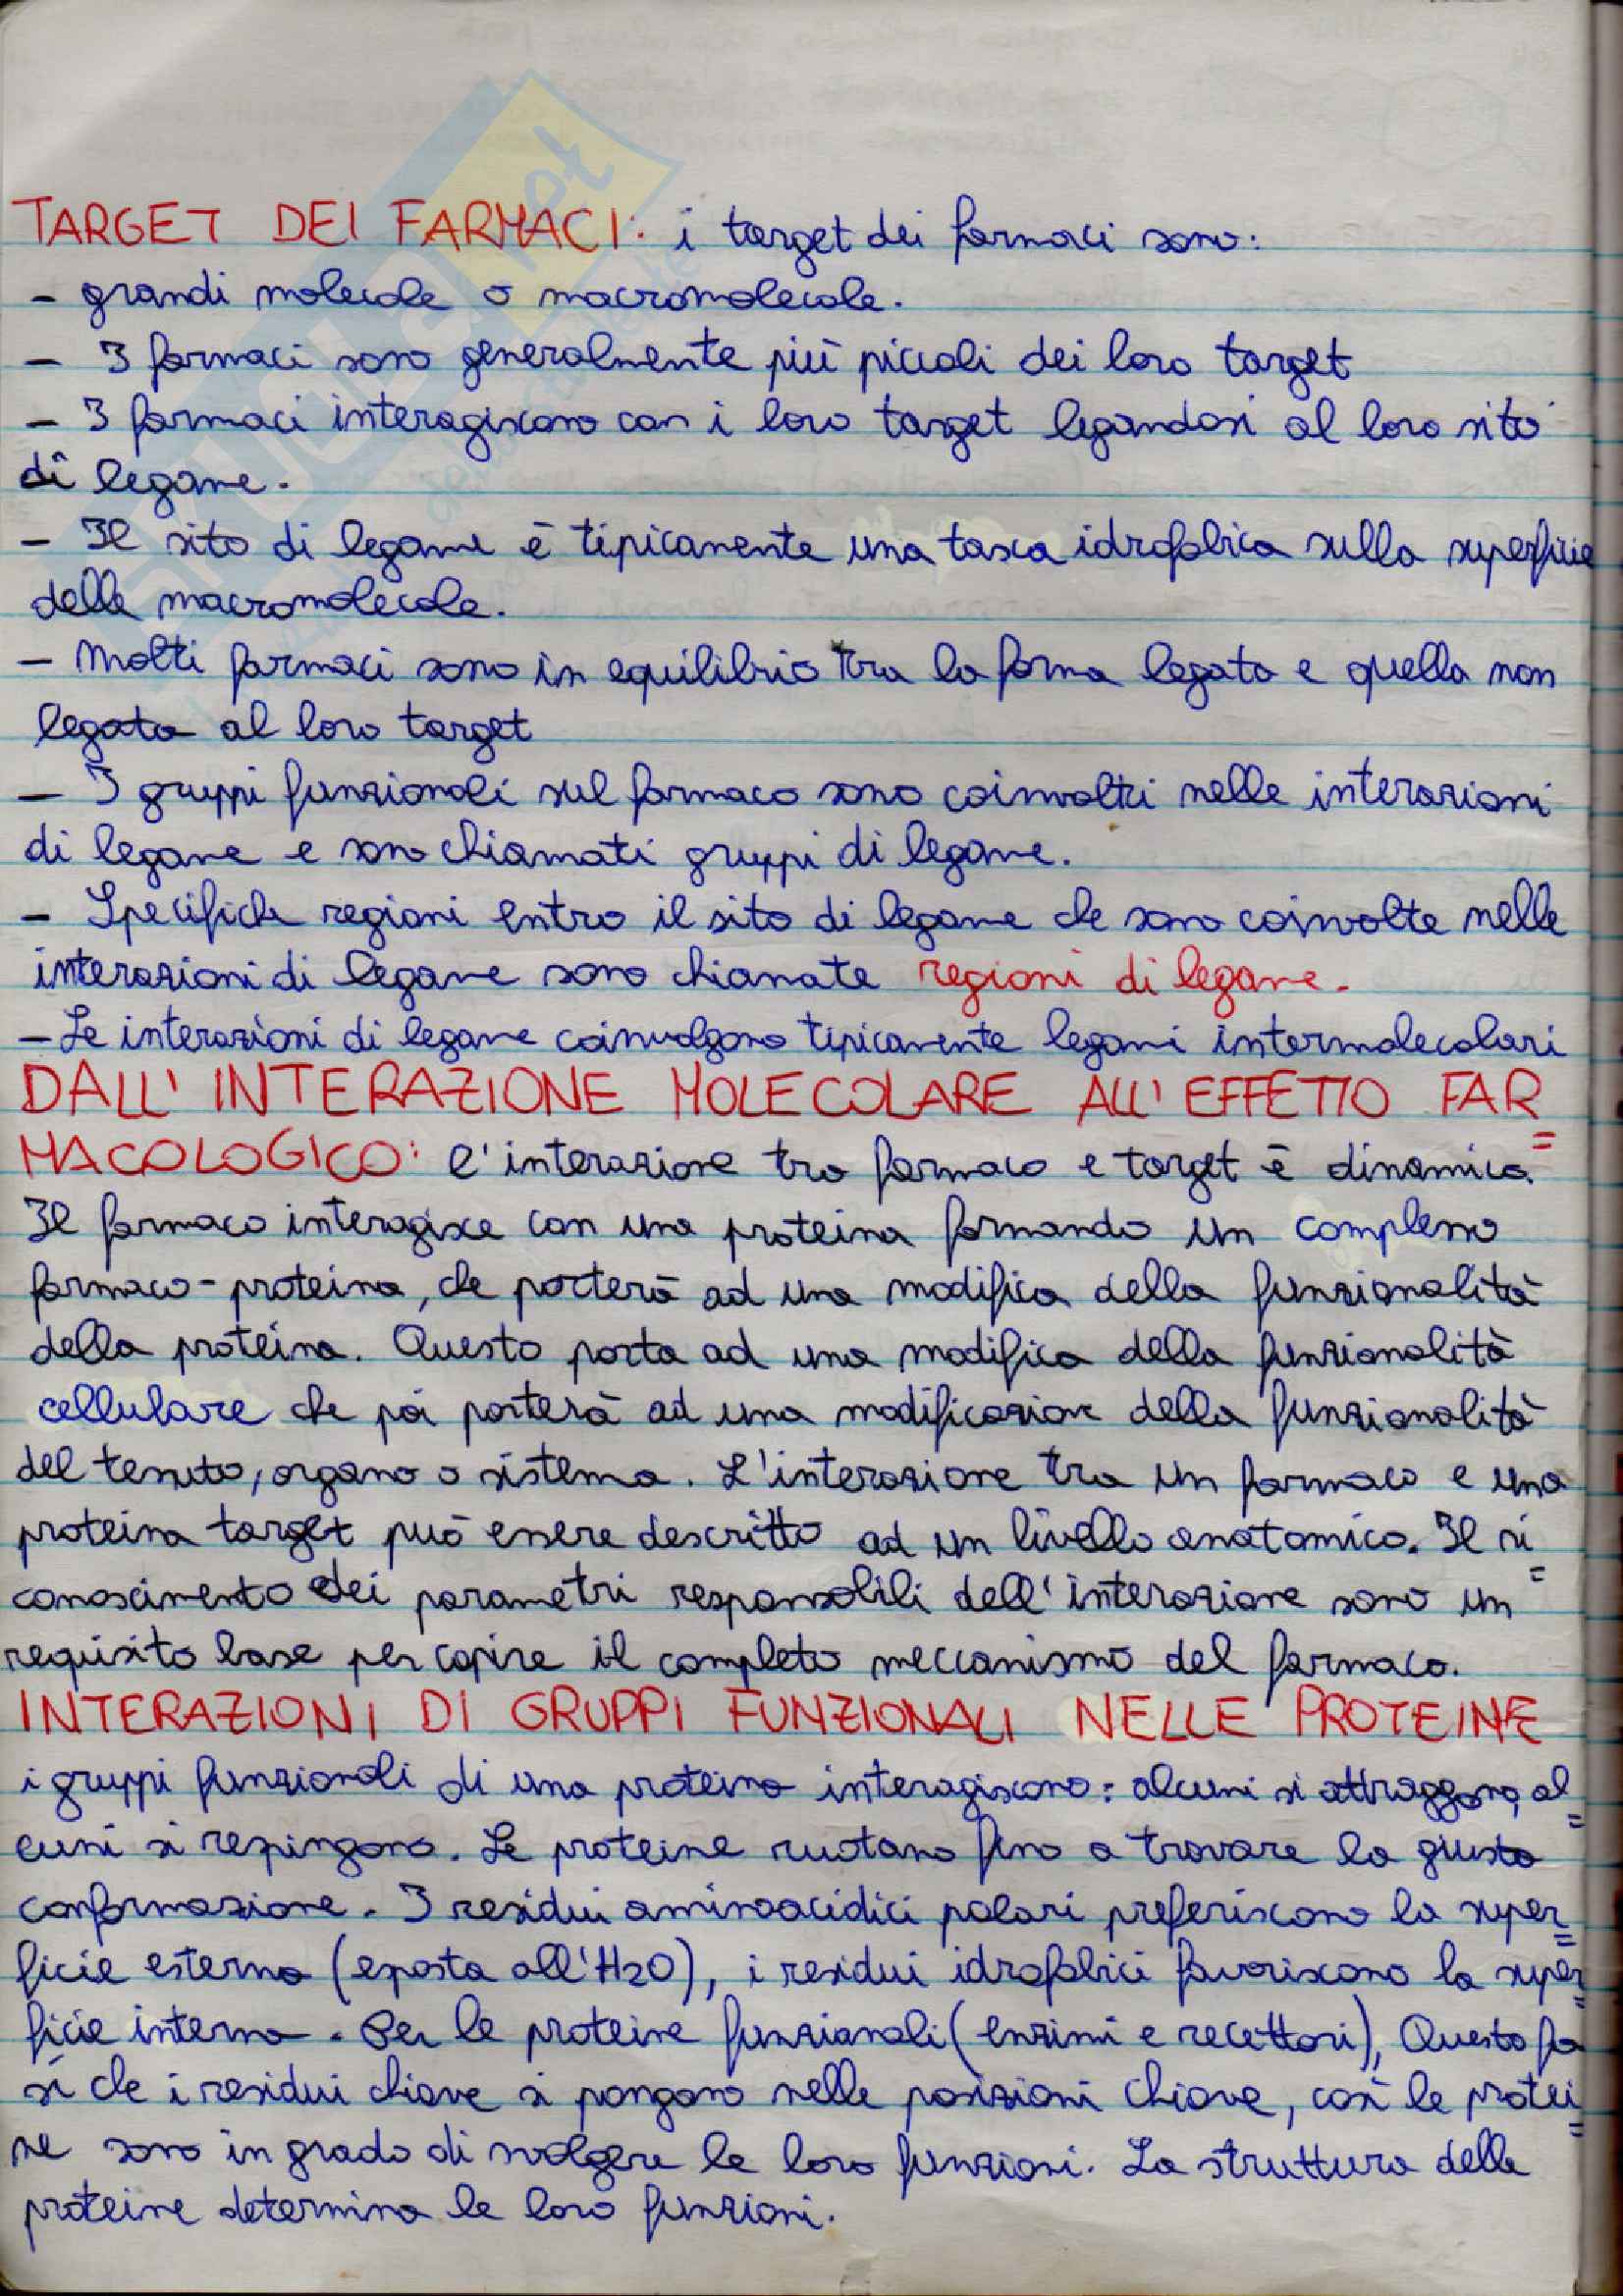 TARGET DEI FARMACI: i target dei farmaci sono:
- grandi molecole o macromolecole.
- I farmaci sono generalmente più piccoli dei loro target
- I farmaci interagiscono con i loro target legandosi al loro sito
di legame.
- Il sito di legame è tipicamente una tasca idrofobica sulla superficie
delle macromolecole.
- Molti farmaci sono in equilibrio tra la forma legata e quella non
legata al loro target
- I gruppi funzionali sul farmaco sono coinvolti nelle interazioni
di legame e sono chiamati gruppi di legame.
- Specifiche regioni entro il sito di legame che sono coinvolte nelle
interazioni di legame sono chiamate regioni di legame.
- Le interazioni di legame coinvolgono tipicamente legami intermolecolari
DALL'INTERAZIONE MOLECOLARE ALL'EFFETTO FAR=
MACOLOGICO: l'interazione tra farmaco e target è dinamica.
Il farmaco interagisce con una proteina formando un complesso
farmaco-proteina, che porterà ad una modifica della funzionalità
della proteina. Questo porta ad una modifica della funzionalità
cellulare che poi porterà ad una modificazione della funzionalità
del tessuto, organo o sistema. L'interazione tra un farmaco e una
proteina target può essere descritto ad un livello anatomico. Il ri=
conoscimento dei parametri responsabili dell'interazione sono un
requisito base per capire il completo meccanismo del farmaco.
INTERAZIONI DI GRUPPI FUNZIONALI NELLE PROTEINE
i gruppi funzionali di una proteina interagiscono: alcuni si attraggono, al=
cuni si respingono. Le proteine ruotano fino a trovare la giusta
conformazione. I residui aminoacidici polari preferiscono la super=
ficie esterna (esposta all'H2O), i residui idrofobici favoriscono la super=
ficie interna. Per le proteine funzionali (enzimi e recettori), Questo fa
sì che i residui chiave si pongono nelle posizioni chiave, così le protei=
ne sono in grado di svolgere le loro funzioni. La struttura delle
proteine determina le loro funzioni.